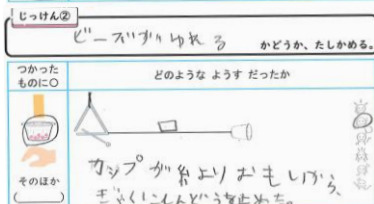 じっけん②
ビーズがゆれる
かどうか、たしかめる。
つかった
ものに○
どのような ようす だったか
カップが糸よりおもいから、
ぎゃくにしんどうを止めた。
そのほか